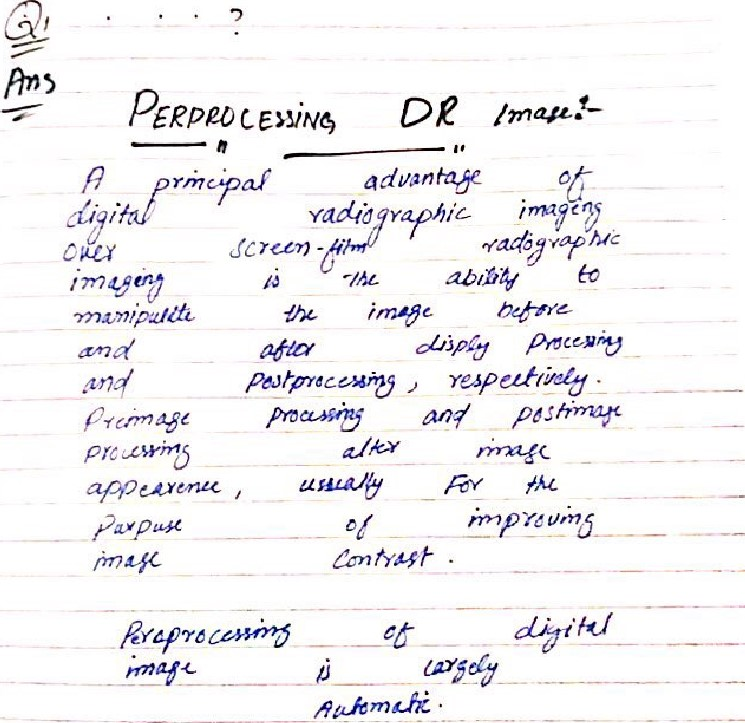 Q1 . . . . ?
Ans
PERPROCESSING DR Image:-
A principal advantage of
digital radiographic imaging
over screen-film radiographic
imageing is the ability to
manipulate the image before
and after disply processing
and Postprocessing, respectively.
Preimage processing and postimage
processing alter image
appearence, usually For the
Purpuse of improving
image Contrast.
Peroprocessing of digital
image is largely
Automatic.